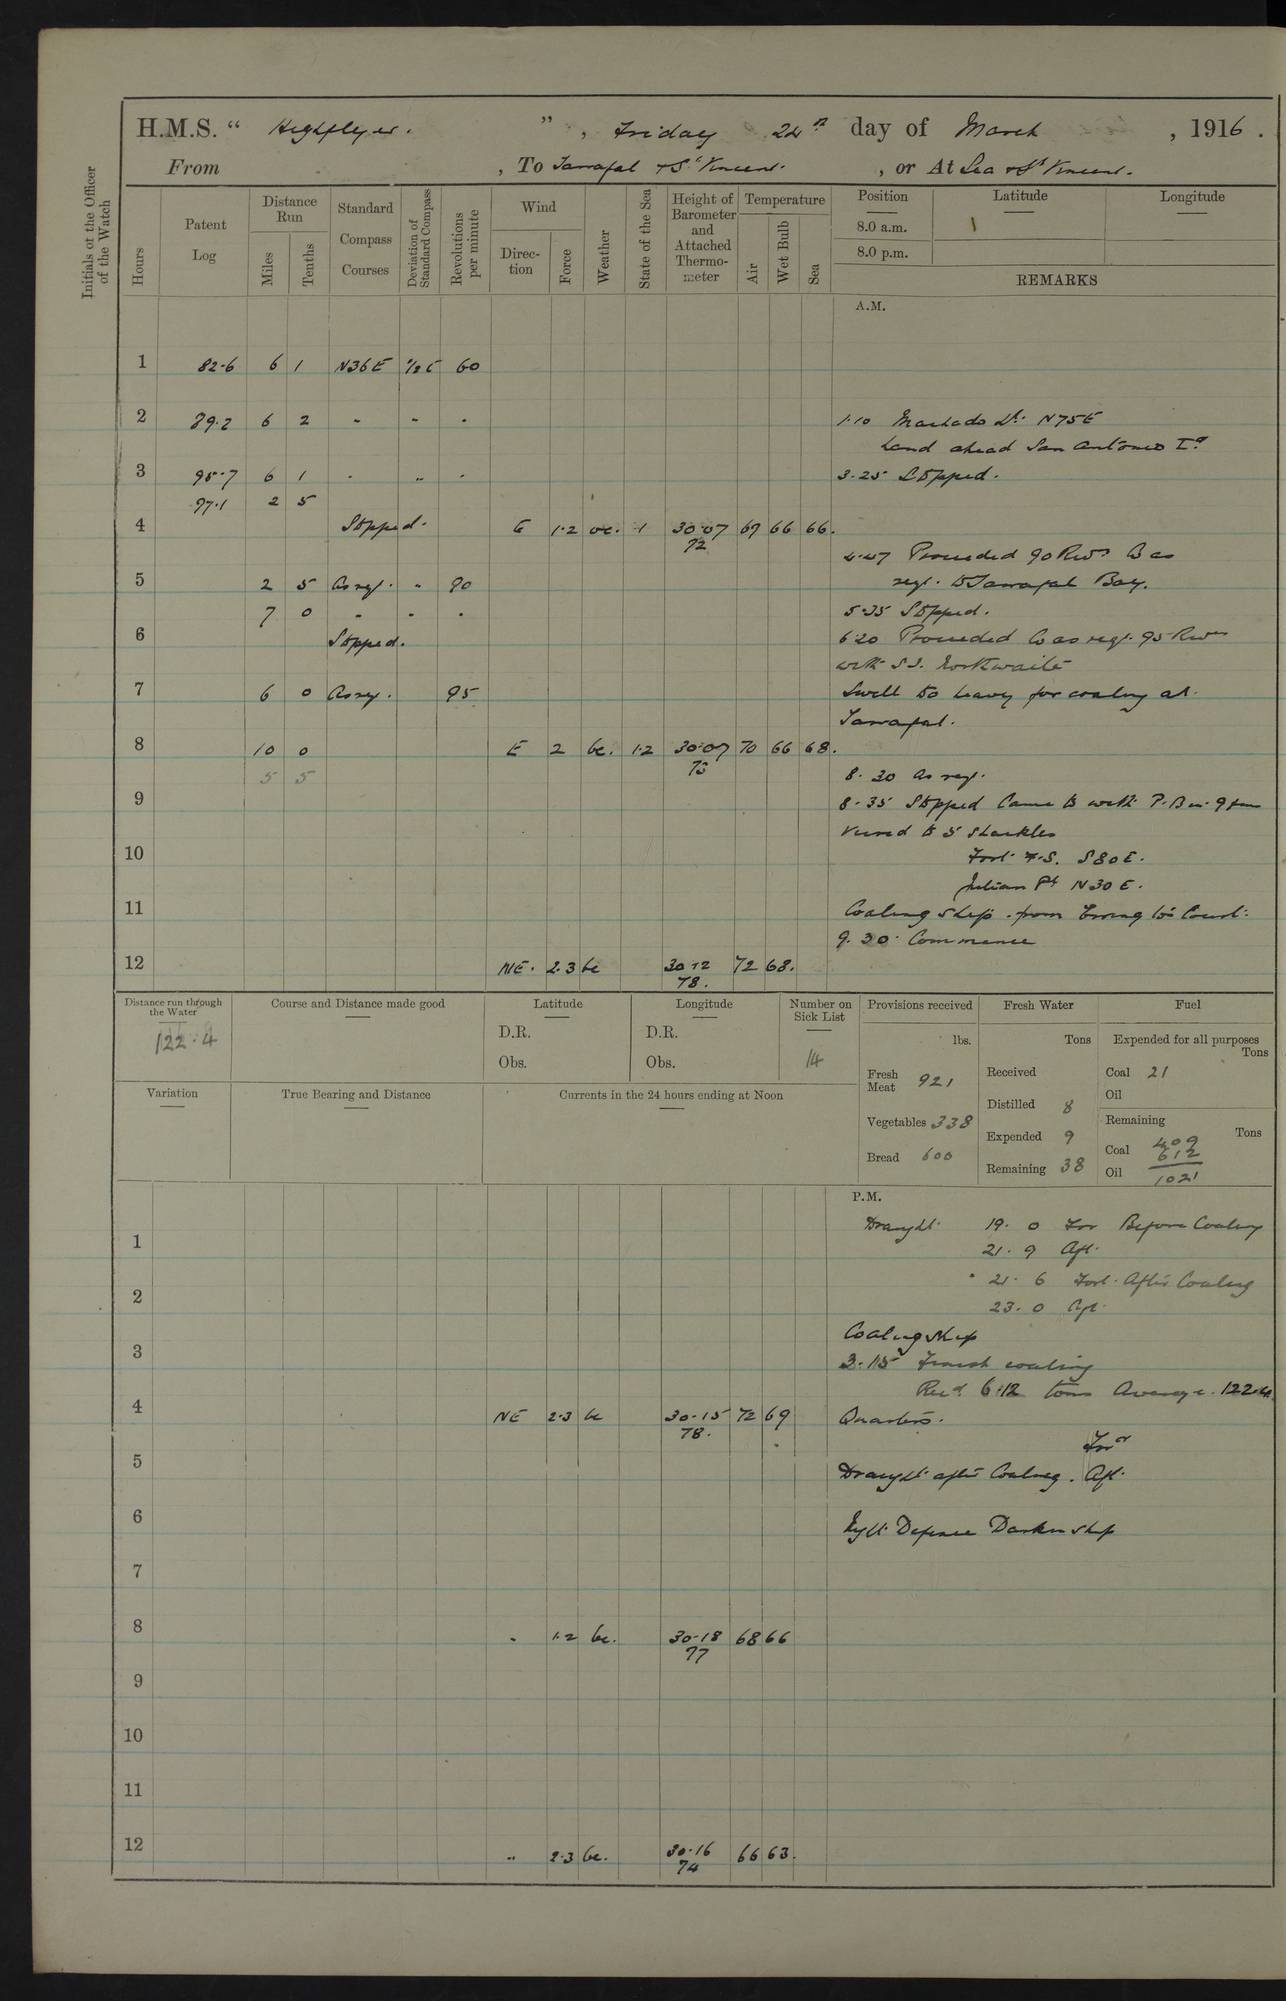 H.M.S. “ Highflyer. ” , Friday 24th day of March , 1916 .
From , To Tarrafal & St Vincent. , or At Sea & St Vincent.
Initials of the Officer of the Watch
Hours
Patent Log
Distance Run
Miles
Tenths
Standard Compass Courses
Deviation of Standard Compass
Revolutions per minute
Wind
Direction
Force
Weather
State of the Sea
Height of Barometer and Attached Thermometer
Temperature
Air
Wet Bulb
Sea
Position
8.0 a.m.
8.0 p.m.
Latitude
Longitude
REMARKS
A.M.
1 82.6 6 1 N36E 1/2E 60
2 89.2 6 2 " " " 1.10 Machado Lt. N75E
Land ahead San Antonio Id
3 95.7 6 1 " " " 3.25 Stopped.
97.1 2 5
4 Stopped. E 1.2 oc. 1 30.07 69 66 66.
72
4.47 Proceeded 90 Revs Co as
5 2 5 As req. " 90 reqd. to Tarrafal Bay.
7 0 " " " 5.35 Stopped.
6 Stopped. 6.20 Proceeded Co as req. 95 Revs
with S.S. Northwaite
7 6 0 As req. 95 Swell too heavy for coaling at
Tarrafal.
8 10 0 E 2 bc. 1.2 30.07 70 66 68.
73
5 5 8.30 as req.
9 8.35 Stopped Came to with P.B in 9 fm
veered to 5 shackles
10 Fort F.S. S80E.
Julian Pt N30E.
11 Coaling ship from
9.30 Commence
12 NE. 2.3 bc 30.12 72 68.
78.
Distance run through the Water
122.4
Course and Distance made good
Latitude
D.R.
Obs.
Longitude
D.R.
Obs.
Number on Sick List
14
Variation
True Bearing and Distance
Currents in the 24 hours ending at Noon
Provisions received
lbs.
Fresh Meat 921
Vegetables 338
Bread 600
Fresh Water
Tons
Received
Distilled 8
Expended 9
Remaining 38
Fuel
Expended for all purposes
Tons
Coal 21
Oil
Remaining
Tons
Coal 409
612
Oil 1021
P.M.
Draught 19. 0 For Before Coaling
1 21. 9 Aft.
21. 6 Ford. After Coaling
2 23. 0 Aft.
Coaling ship
3 3.15 Finish coaling
Recd 612 tons Average 122.4
4 NE 2.3 bc 30.15 72 69 Quarters.
78.
Ford
5 Draught after Coaling. Aft.
6 Night Defence Darken ship
7
8 " 1.2 bc. 30.18 68 66
77
9
10
11
12 " 2.3 bc. 30.16 66 63.
74